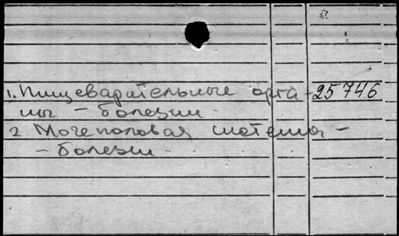 1. Пищеварительные орга- 25746
ны - болезни.
2 Мочеполовая система -
- болезни.